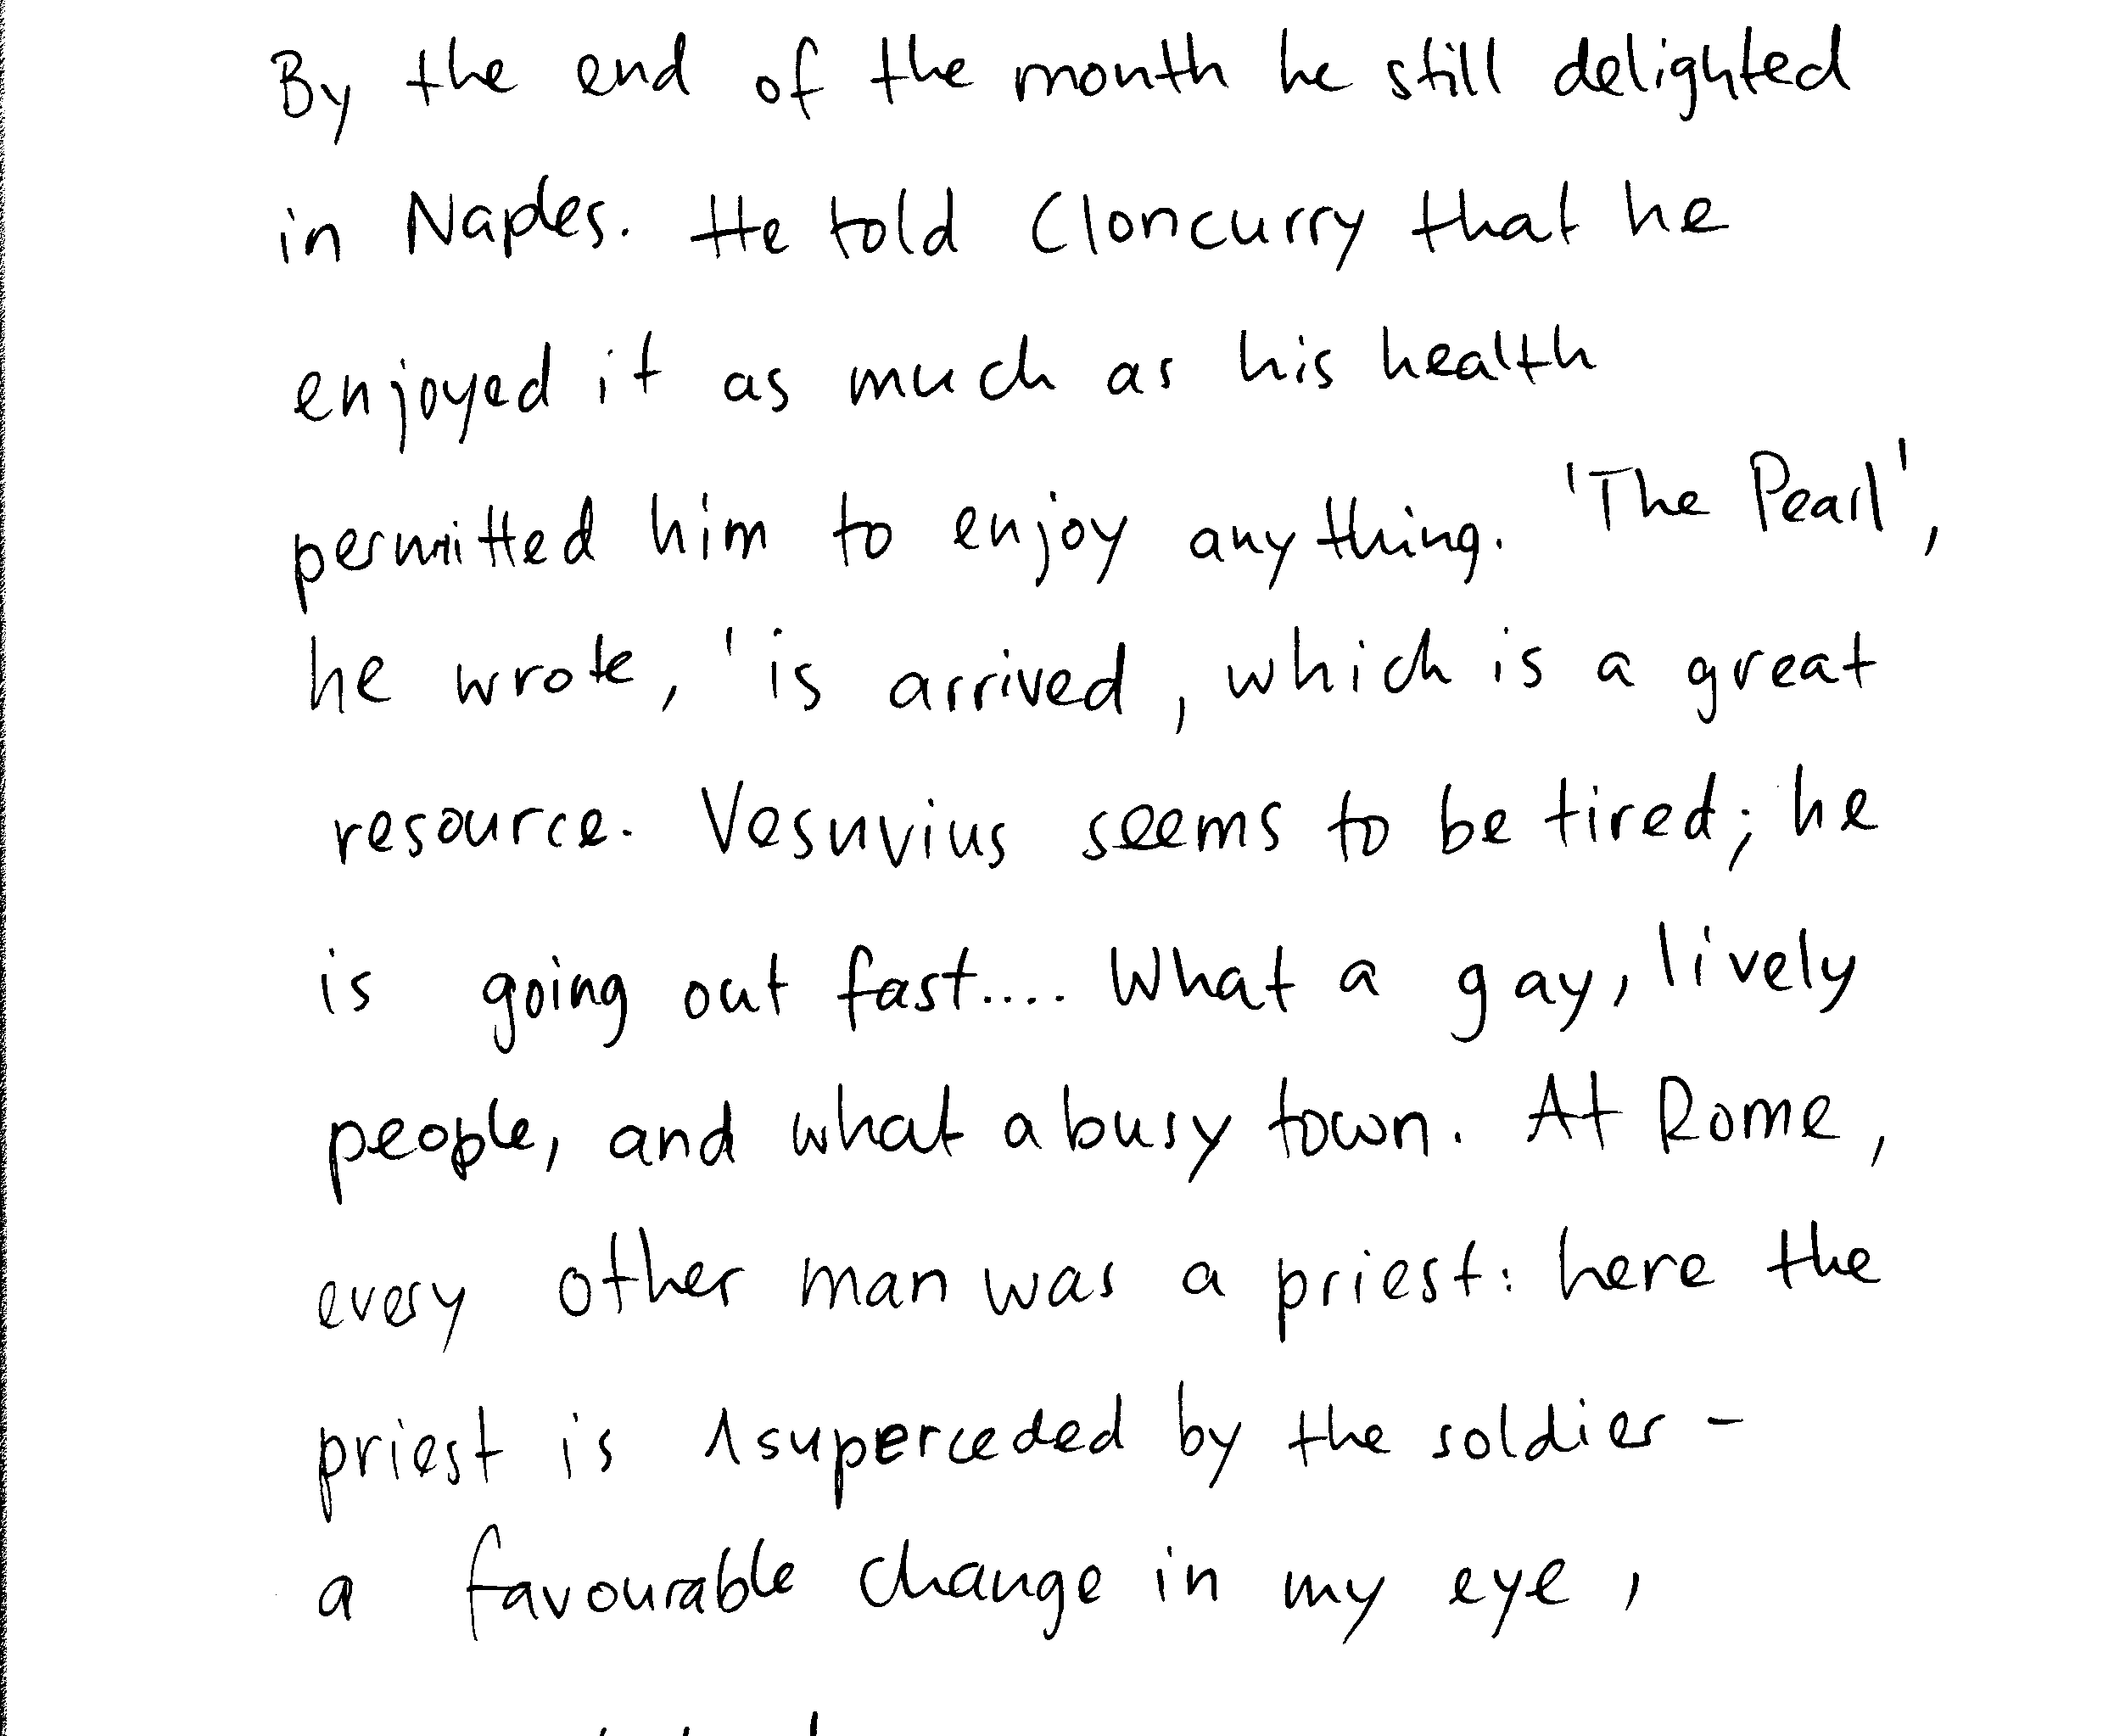 By the end of the month he still delighted
in Naples. He told Cloncurry that he
enjoyed it as much as his health
permitted him to enjoy anything. 'The Pearl',
he wrote, 'is arrived, which is a great
resource. Vesuvius seems to be tired; he
is going out fast.... What a gay, lively
people, and what a busy town. At Rome,
every other man was a priest: here the
priest is superceded by the soldier -
a favourable change in my eye,